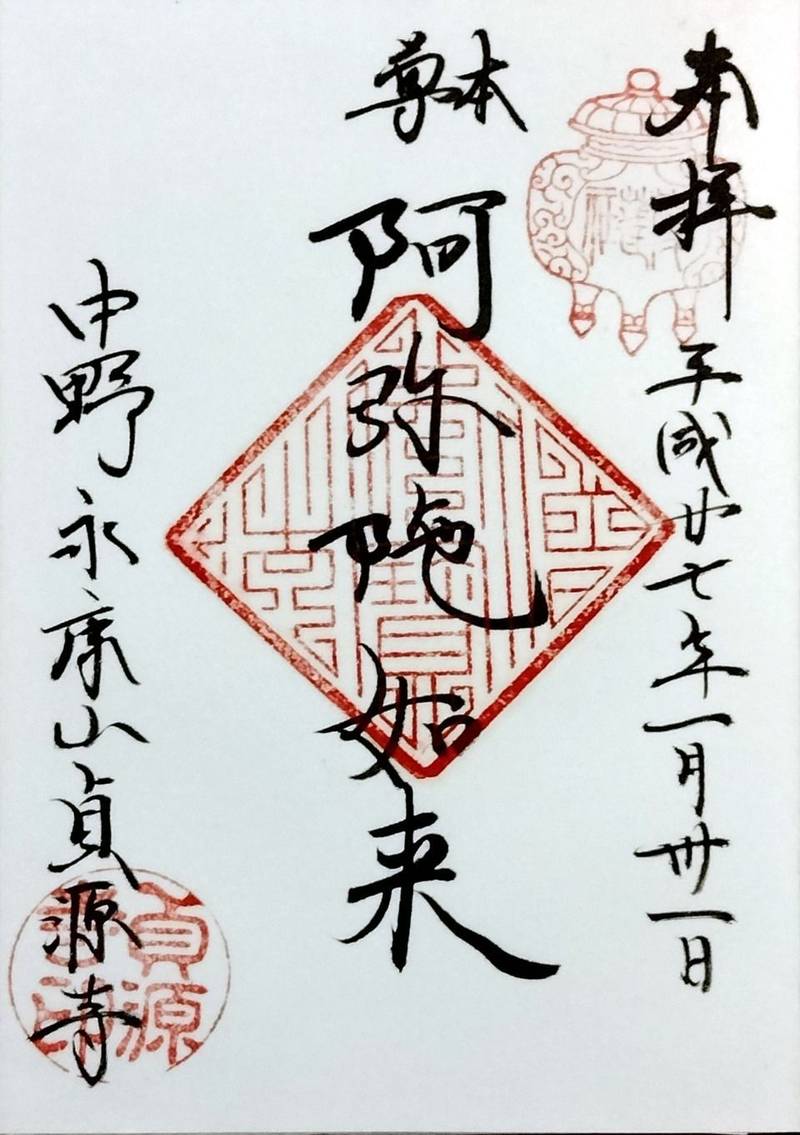 奉拝
平成廿七年一月卅一日
本尊
阿弥陀如来
中野永康山貞源寺
貞源寺印